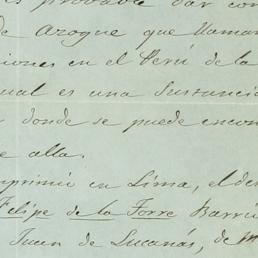 es probable dar con
de azogue que llaman
iones en el Perú de la
ual es una sustancia
donde se puede encon
e alla.
mprimió en Lima, el de
Felipe de la Torre Barrio
Juan de Lucanás, de